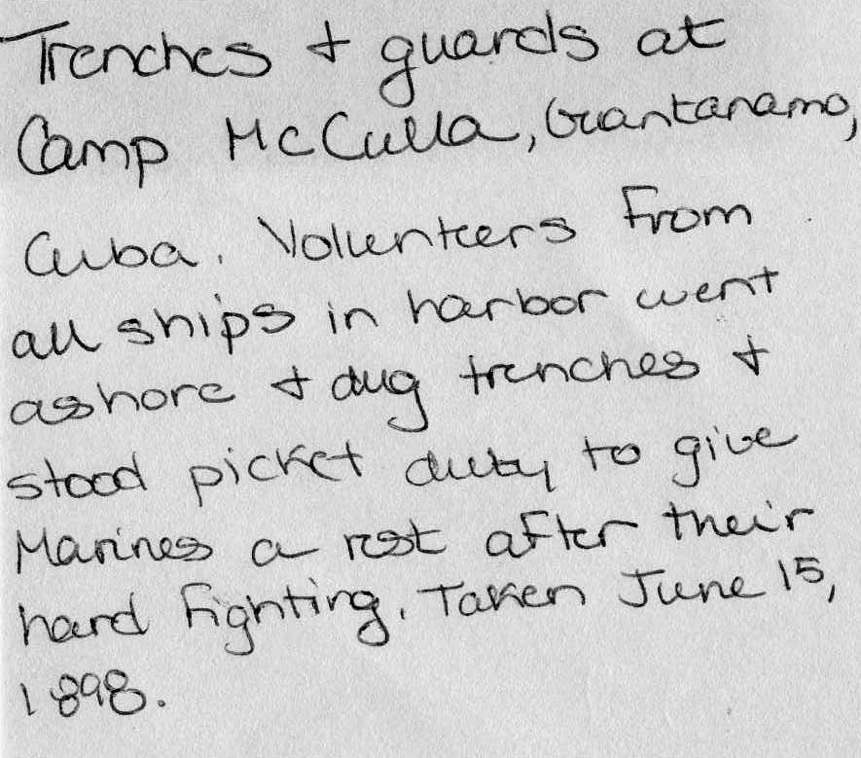 Trenches + guards at
Camp McCulla, Guantanamo,
Cuba. Volunteers from
all ships in harbor went
ashore + dug trenches +
stood picket duty to give
Marines a rest after their
hard fighting. Taken June 15,
1898.